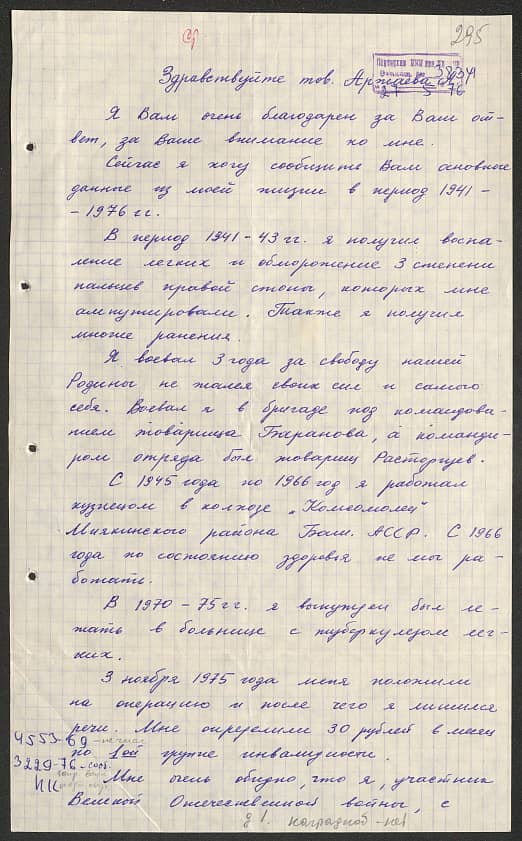 295
Здравствуйте тов. Аржаева
27 5 76
Я Вам очень благодарен за Ваш от-
вет, за Ваше внимание ко мне.
Сейчас я хочу сообщить Вам основные
данные из моей жизни в период 1941 -
- 1976 гг.
В период 1941 - 43 гг. я получил воспа-
ление легких и обморожение 3 степени
пальцев правой стопы, которых мне
ампутировали. Также я получил
многие ранения.
Я воевал 3 года за свободу нашей
Родины не жалея своих сил и самого
себя. Воевал я в бригаде под командова-
нием товарища Баранова, а команди-
ром отряда был товарищ Расторгуев.
С 1945 года по 1966 год я работал
кузнецом в колхозе „Комсомолец"
Миякинского района Баш. АССР. С 1966
года по состоянию здоровья не мог ра-
ботать.
В 1970 - 75 гг. я вынужден был ле-
жать в больнице с туберкулезом лег-
ких.
3 ноября 1975 года меня положили
на операцию и после чего я лишился
речи. Мне определили 30 рублей в месяц
по 1ой группе инвалидности.
4553-69
3229-76
Мне очень обидно, что я, участник
Великой Отечественной войны, с
наградной - нет